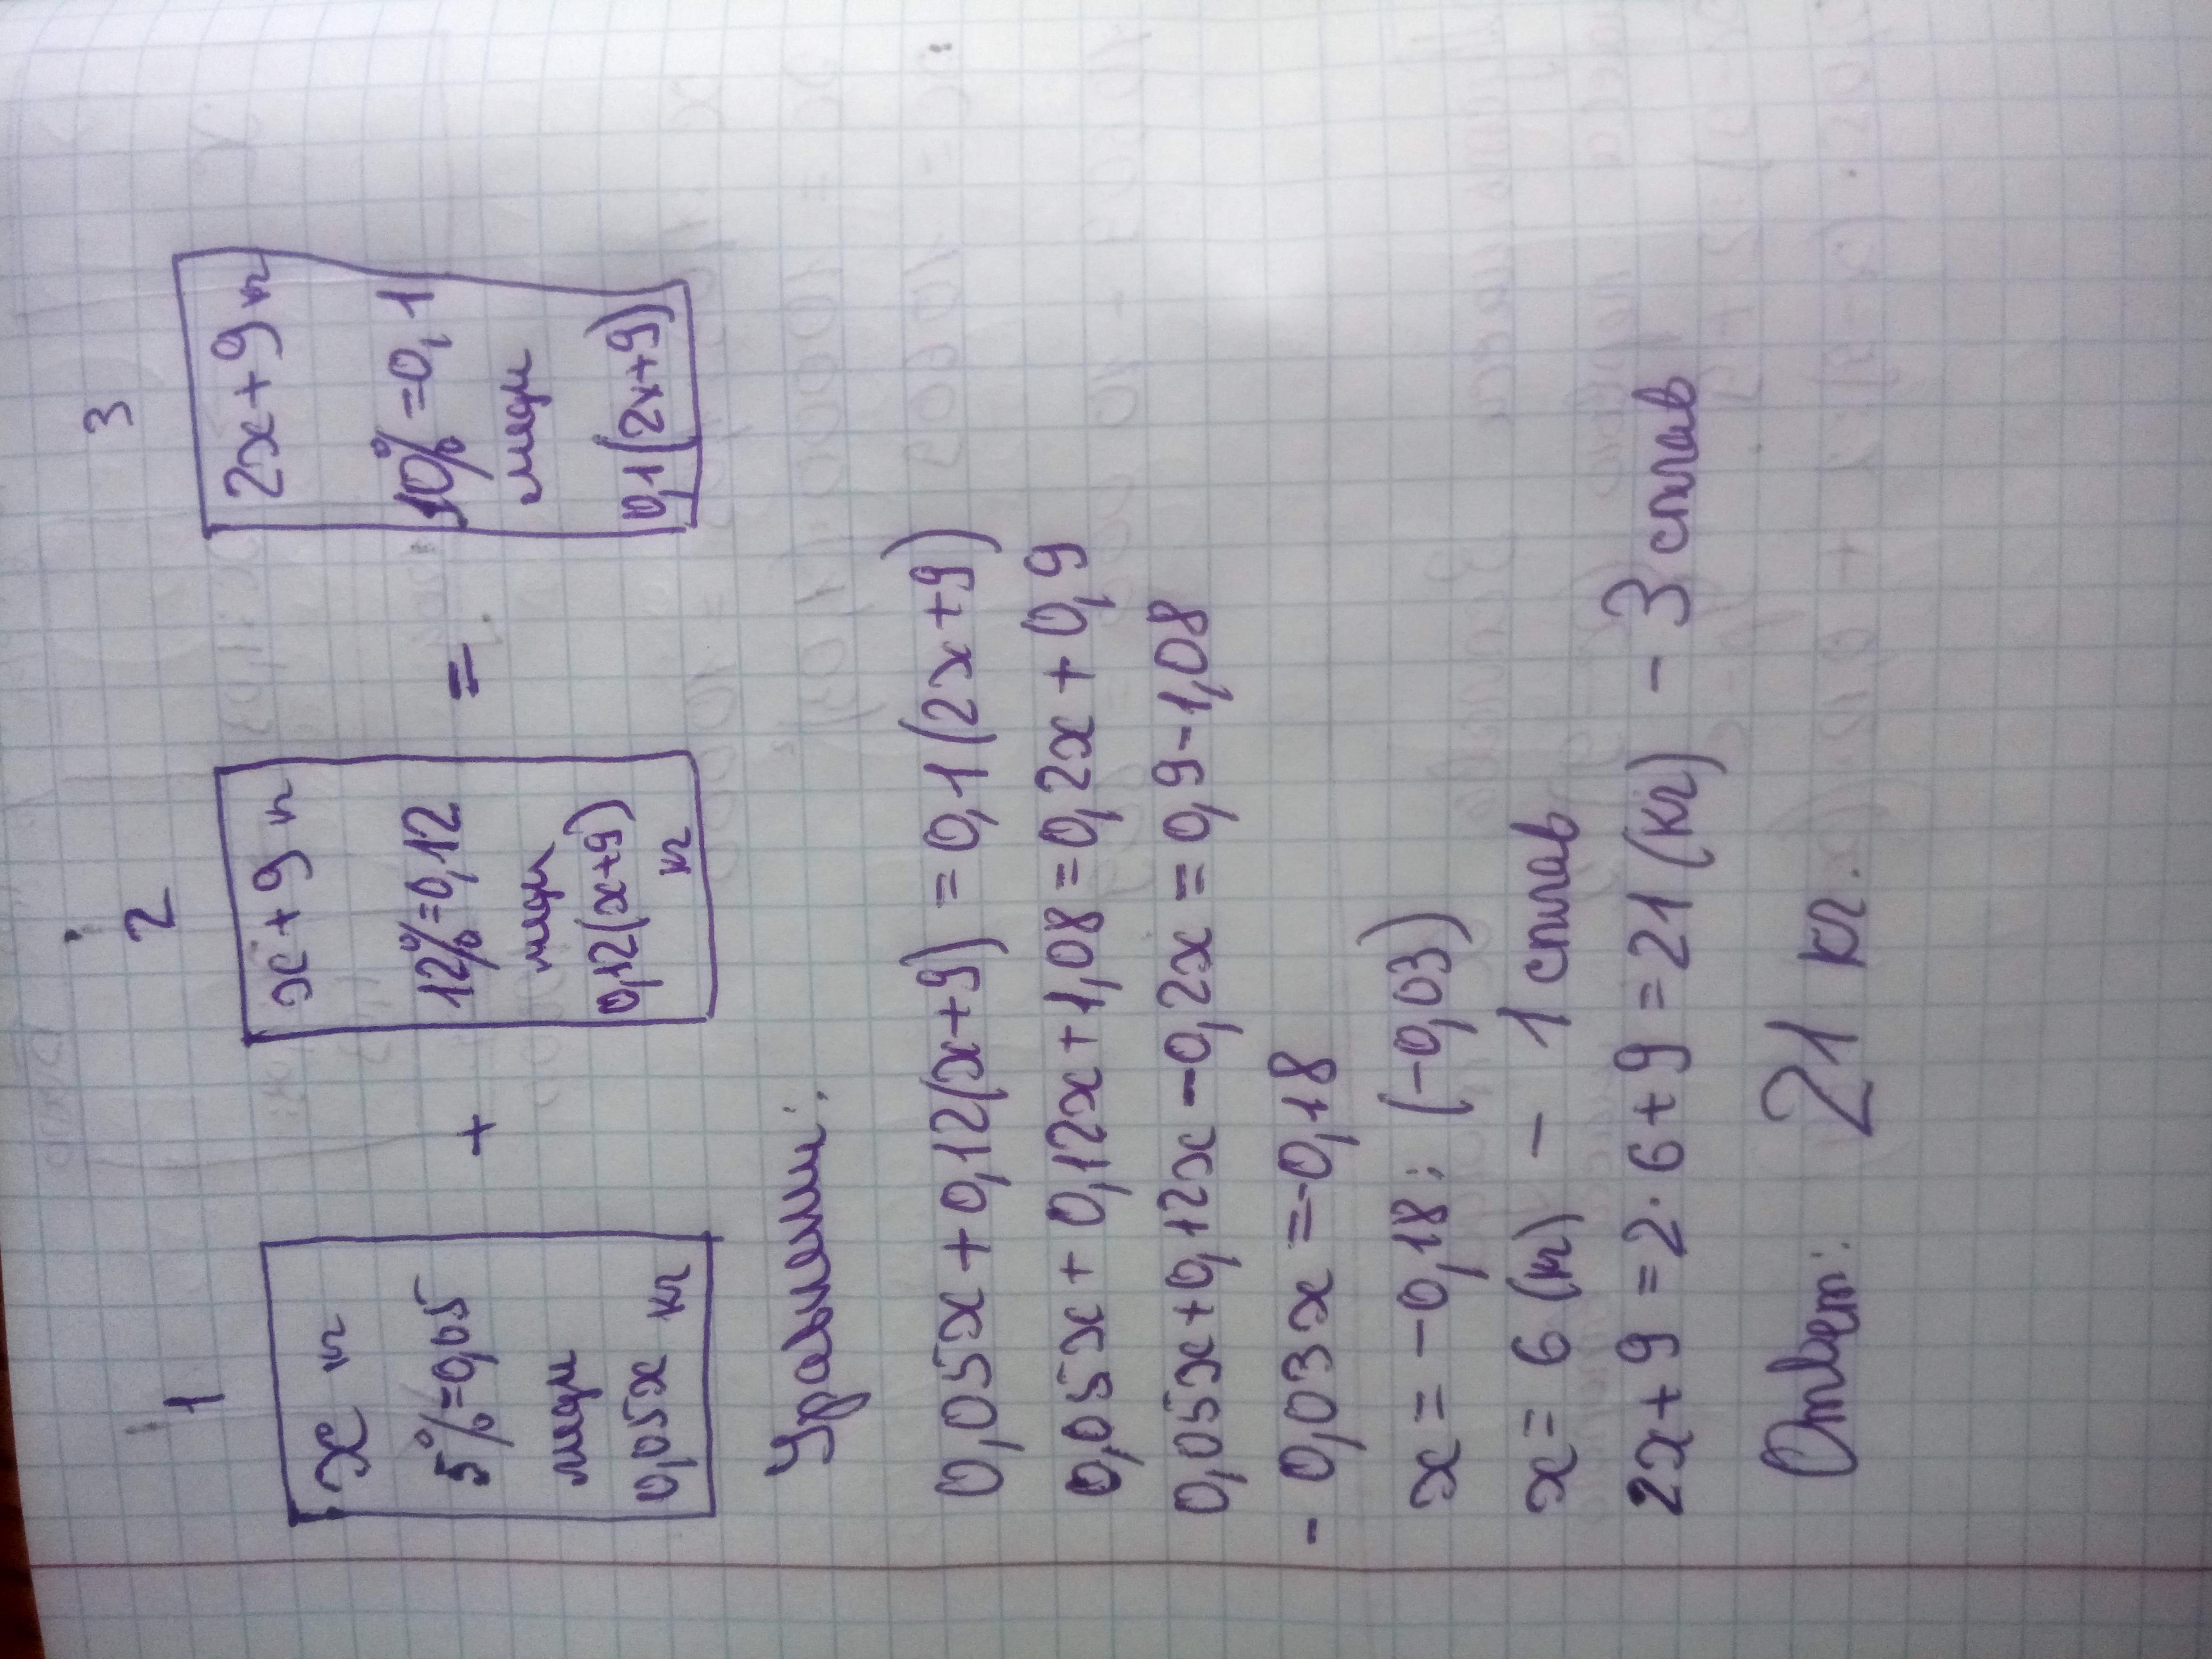 1
2
3
x кг
5%=0,05
меди
0,05x кг
+
x+9 кг
12%=0,12
меди
0,12(x+9)
кг
=
2x+9 кг
10%=0,1
меди
0,1(2x+9)
Уравнение:
0,05x+0,12(x+9)=0,1(2x+9)
0,05x+0,12x+1,08=0,2x+0,9
0,05x+0,12x-0,2x=0,9-1,08
-0,03x=-0,18
x=-0,18:(-0,03)
x=6(кг) - 1 сплав
2x+9=2·6+9=21(кг) - 3 сплав
Ответ: 21 кг.